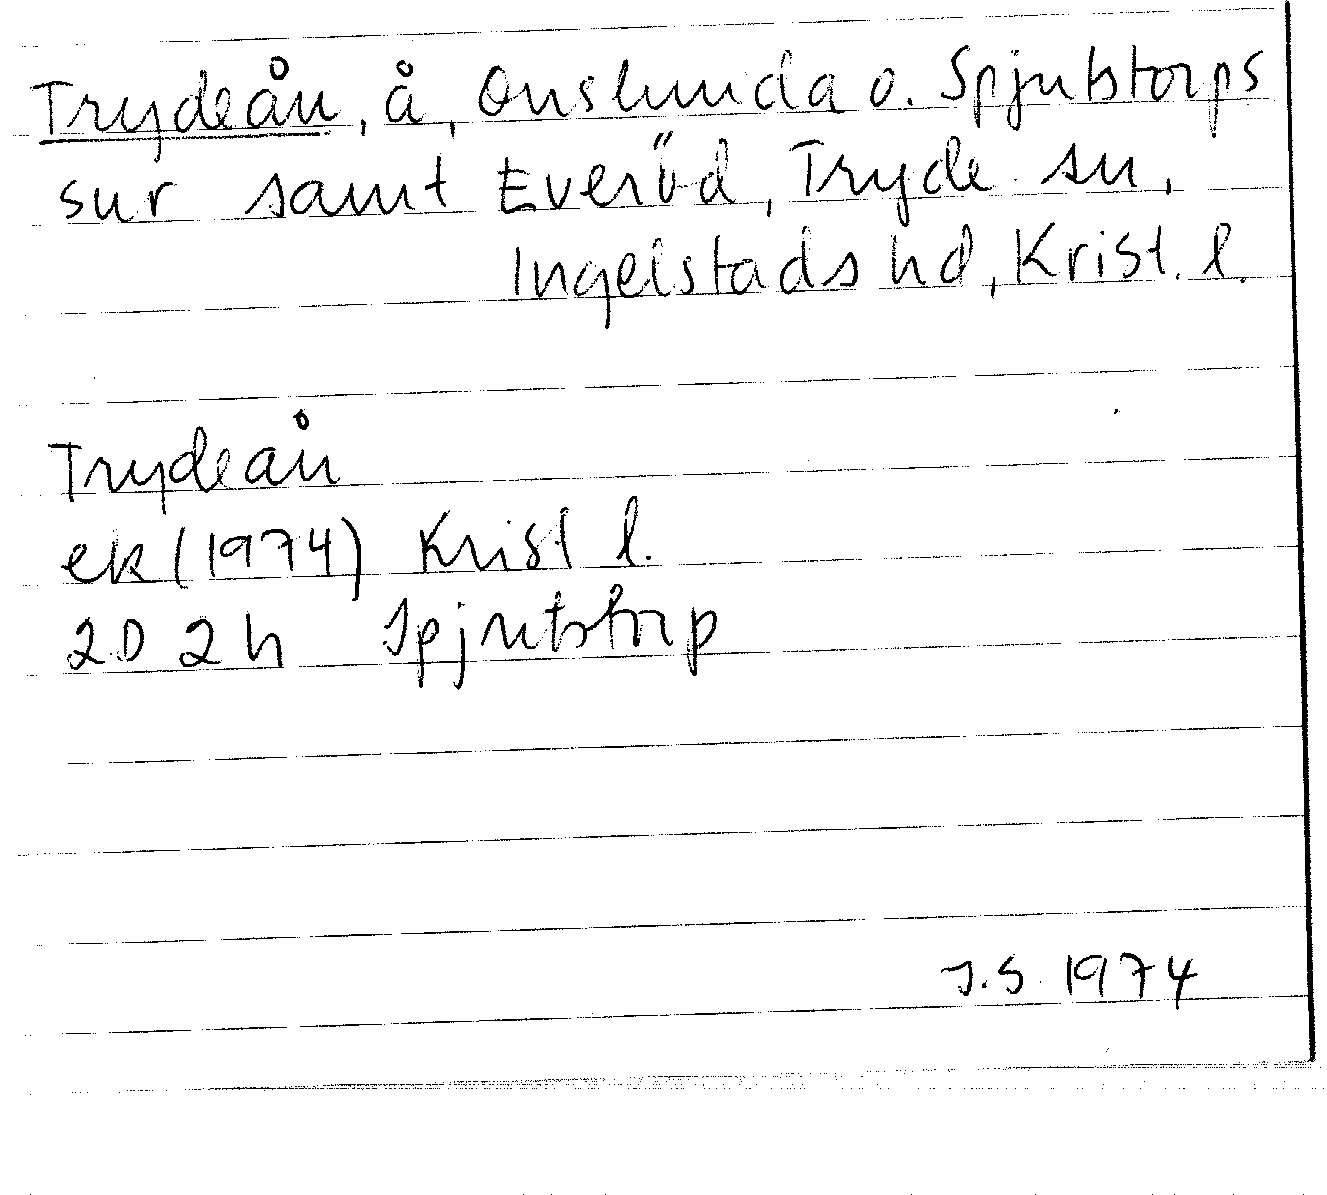 Trydeån, å, Onslunda o. Spjutstorps
snr samt Everöd, Tryde sn,
Ingelstads hd, Krist. l.
Trydeån
ek (1974) Krist l.
2D 2h Spjutstorp
J.S 1974